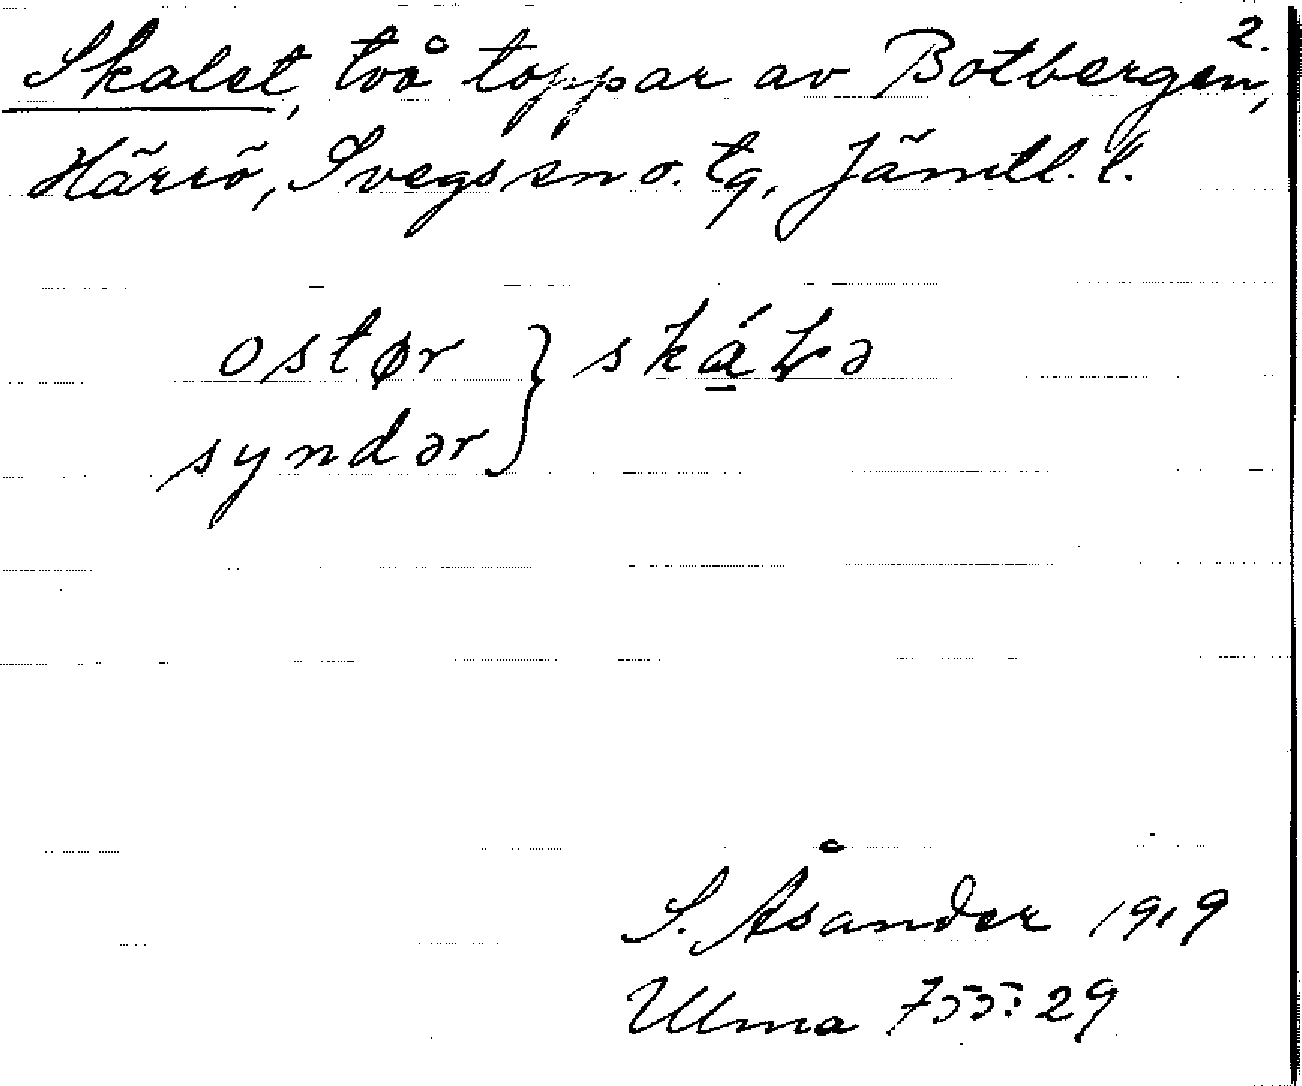 2.
Skalet, två toppar av Botbergen,
Härrö, Svegs sn o. tg, Jämtl. l.
ostør } skáɫə
syndər
S. Åsander 1919
Ulma 755:29